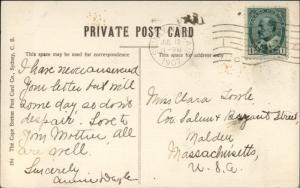 PRIVATE POST CARD
This space may be used for correspondence
This space for address only
JUL 12
1907
I have never answered
Your letter but will
some day so don't
despair. Love to
Your Mother, all
are well.
Sincerely
Annie
Miss Clara Towle
Cor. Salem & Bryant Street,
Malden
Massachusetts,
U.S.A.
184 The Cape Breton Post Card Co., Sydney, C. B.